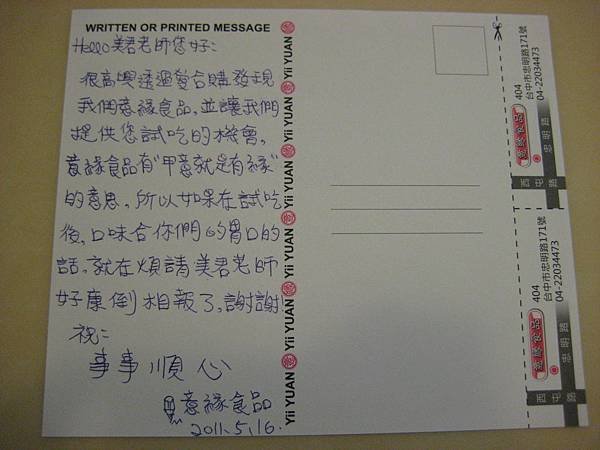 WRITTEN OR PRINTED MESSAGE
Hello 美君老師您好:
很高興透過愛合購發現
我們意緣食品,並讓我們
提供您試吃的機會。
意緣食品有"甲意就是有緣"
的意思,所以如果在試吃
後,口味合你們的胃口的
話,就在煩請美君老師
好康倒相報了,謝謝
祝:
事事順心
意緣食品
2011.5.16.
Yii YUAN
Yii YUAN
Yii YUAN
Yii YUAN
Yii YUAN
Yii YUAN
404
台中市忠明路171號
04-22034473
意緣食品
忠明路
西屯路
404
台中市忠明路171號
04-22034473
意緣食品
忠明路
西屯路